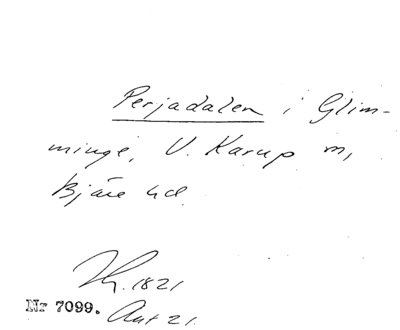 Perjadalen i Glim-
minge, V. Karup m,
Bjäre hd
Hg. 1821
Nr 7099. Ant 21.